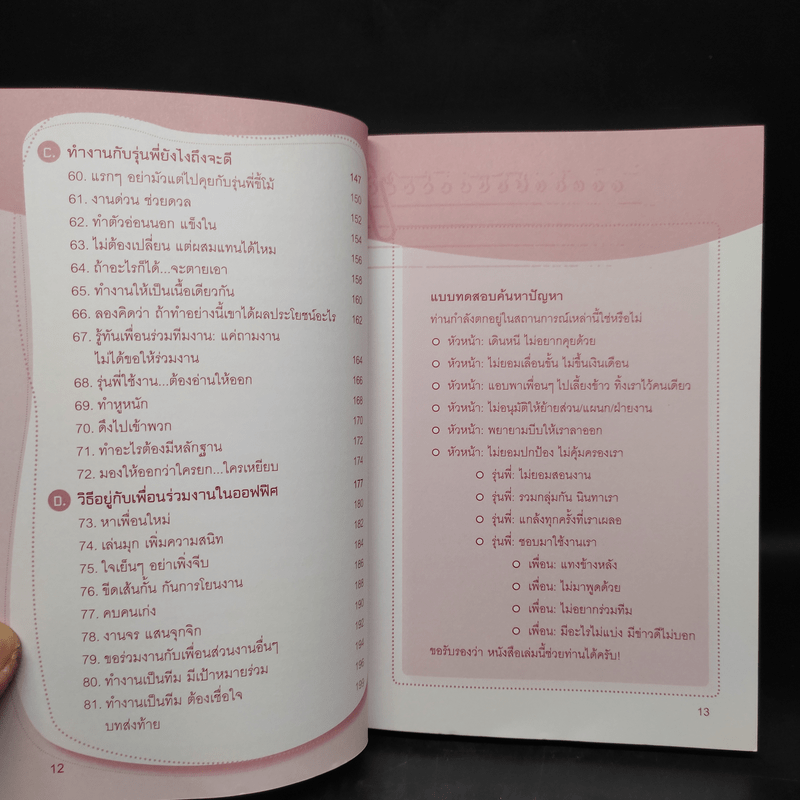 C. ทำงานกับรุ่นพี่ยังไงถึงจะดี
60. แรกๆ อย่ามัวแต่ไปคุยกับรุ่นพี่ขี้โม้ 147
61. งานด่วน ช่วยดวล 150
62. ทำตัวอ่อนนอก แข็งใน 152
63. ไม่ต้องเปลี่ยน แต่ผสมแทนได้ไหม 154
64. ถ้าอะไรก็ได้...จะตายเอา 156
65. ทำงานให้เป็นเนื้อเดียวกัน 158
66. ลองคิดว่า ถ้าทำอย่างนี้เขาได้ผลประโยชน์อะไร 160
67. รู้ทันเพื่อนร่วมทีมงาน: แค่ถามงาน 162
ไม่ได้ขอให้ร่วมงาน
68. รุ่นพี่ใช้งาน...ต้องอ่านให้ออก 164
69. ทำหูหนัก 166
70. ดึงไปเข้าพวก 168
71. ทำอะไรต้องมีหลักฐาน 170
72. มองให้ออกว่าใครยก...ใครเหยียบ 172
174
D. วิธีอยู่กับเพื่อนร่วมงานในออฟฟิศ 177
73. หาเพื่อนใหม่ 180
74. เล่นมุก เพิ่มความสนิท 182
75. ใจเย็นๆ อย่าเพิ่งจีบ 184
76. ขีดเส้นกั้น กันการโยนงาน 186
77. คบคนเก่ง 188
78. งานจร แสนจุกจิก 190
79. ขอร่วมงานกับเพื่อนส่วนงานอื่นๆ 192
80. ทำงานเป็นทีม มีเป้าหมายร่วม 194
81. ทำงานเป็นทีม ต้องเชื่อใจ 196
บทส่งท้าย 199
12
แบบทดสอบค้นหาปัญหา
ท่านกำลังตกอยู่ในสถานการณ์เหล่านี้ใช่หรือไม่
หัวหน้า: เดินหนี ไม่อยากคุยด้วย
หัวหน้า: ไม่ยอมเลื่อนขั้น ไม่ขึ้นเงินเดือน
หัวหน้า: แอบพาเพื่อนๆ ไปเลี้ยงข้าว ทิ้งเราไว้คนเดียว
หัวหน้า: ไม่อนุมัติให้ย้ายส่วน/แผนก/ฝ่ายงาน
หัวหน้า: พยายามบีบให้เราลาออก
หัวหน้า: ไม่ยอมปกป้อง ไม่คุ้มครองเรา
รุ่นพี่: ไม่ยอมสอนงาน
รุ่นพี่: รวมกลุ่มกัน นินทาเรา
รุ่นพี่: แกล้งทุกครั้งที่เราเผลอ
รุ่นพี่: ชอบมาใช้งานเรา
เพื่อน: แทงข้างหลัง
เพื่อน: ไม่มาพูดด้วย
เพื่อน: ไม่อยากร่วมทีม
เพื่อน: มีอะไรไม่แบ่ง มีข่าวดีไม่บอก
ขอรับรองว่า หนังสือเล่มนี้ช่วยท่านได้ครับ!
13